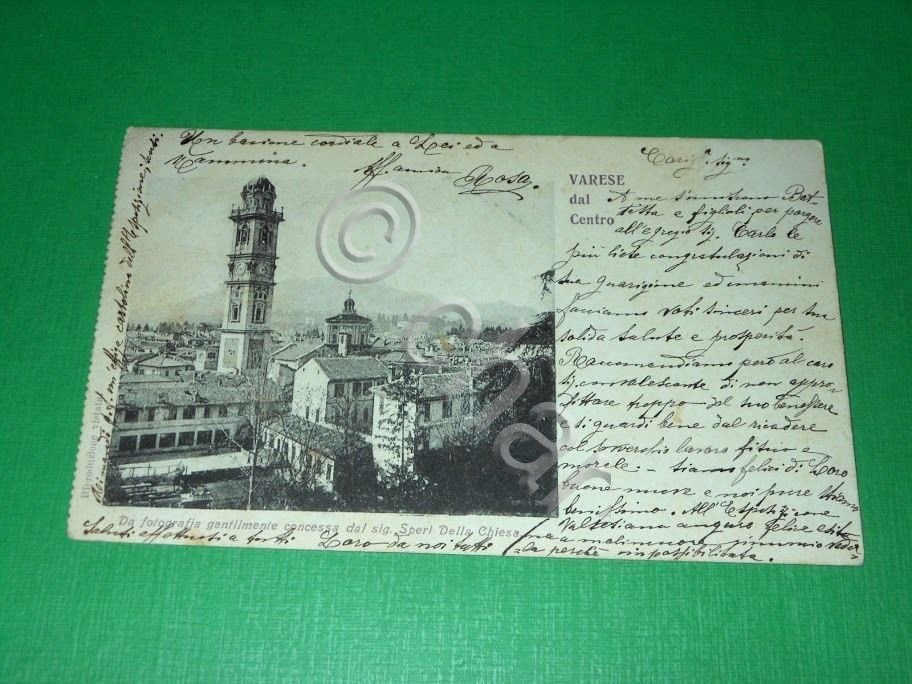 Un bacione cordiale a Lei ed a
Mammina.
Aff. amica Rosa.
VARESE
dal
Centro
A me s'uniscono Bat-
tista e figlioli per porgere
all'egregio Sig. Carlo le
più liete congratulazioni di
sua guarigione ed
facciamo voti sinceri per sua
solida salute e prosperità.
Raccomandiamo però al caro
Sig. convalescente di non appro-
fittare troppo del suo benessere
e si guardi bene dal ricadere
col soverchio lavoro fisico e
morale. - siamo felici di Loro
buone nuove e noi pure stiamo
benissimo. All'Esposizione
Valsesiana auguro felice esito
ma a malincuore rinuncio veder-
la perchè impossibilitata.
Da fotografia gentilmente concessa dal sig. Speri Della Chiesa
Saluti affettuosi a tutti Loro da noi tutti
Riproduzione vietata
cartoline dell'Esposizione
©